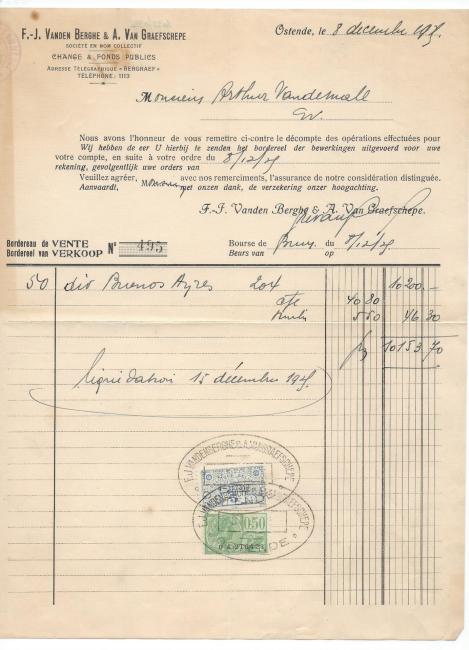 F.-J. VANDEN BERGHE & A. VAN GRAEFSCHEPE
SOCIÉTÉ EN NOM COLLECTIF
CHANGE & FONDS PUBLICS
ADRESSE TÉLÉGRAPHIQUE « BERGRAEF »
TÉLÉPHONE: 1113
Ostende, le 8 décembre
Monsieur Arthur
Nous avons l'honneur de vous remettre ci-contre le décompte des opérations effectuées pour
Wij hebben de eer U hierbij te zenden het bordereel der bewerkingen uitgevoerd voor uwe
votre compte, en suite à votre ordre du 8/12/25
rekening, gevolgentlijk uwe orders van
Veuillez agréer, avec nos remerciments, l'assurance de notre considération distinguée.
Aanvaardt, met onzen dank, de verzekering onzer hoogachting.
F.-J. Vanden Berghe & A. Van Graefschepe.
Bordereau de VENTE
Bordereel van VERKOOP
N° 495
Bourse de Brux. du 8/12/25
Beurs van op
50 div Buenos Ayres 204 10200.-
40 80
5 50 46 30
10153 70
liquidation 15 décembre
F.J. VANDENBERGHE & A. VANGRAEFSCHEPE
0.50